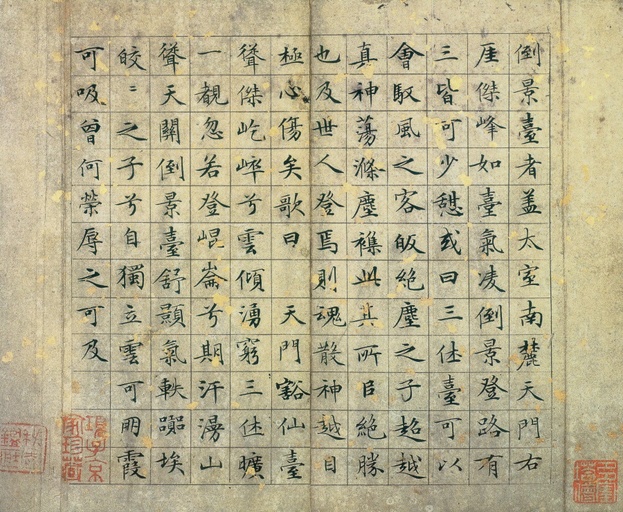 倒景臺者盖太室南麓天門右
厓傑峰如臺氣凌倒景登路有
三皆可少憩或曰三休臺可以
會馭風之客皈絶塵之子超越
真神蕩滌塵襟此其所㠯絶勝
也及世人登焉則魂散神越目
極心傷矣歌曰 天門豁仙臺
聳傑屹崒兮雲傾湧窮三休曠
一覩忽若登崐崙兮期汗漫山
聳天關倒景臺舒顥氣軼囂埃
皎〻之子兮自獨立雲可朋霞
可吸曾何榮辱之可及
項子京
家珍藏